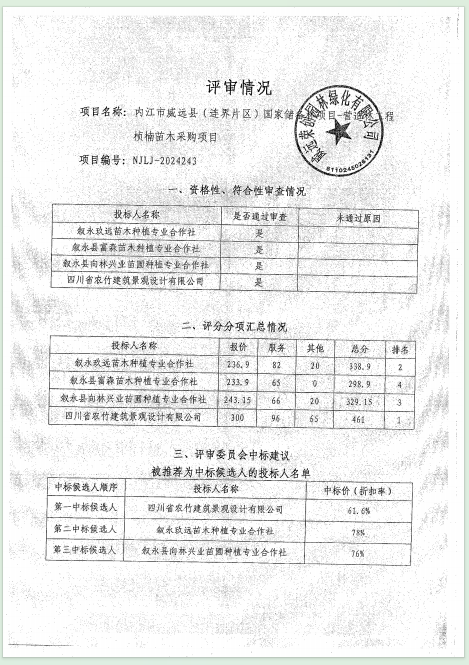 评审情况
项目名称：内江市威远县（连界片区）国家储 项目-营 程
桢楠苗木采购项目
项目编号：NJLJ-2024243
园林绿化有限公司
一、资格性、符合性审查情况
投标人名称 是否通过审查 未通过原因
叙永玖远苗木种植专业合作社 是
叙永县富森苗木种植专业合作社 是
叙永县向林兴业苗圃种植专业合作社 是
四川省农竹建筑景观设计有限公司 是
二、评分分项汇总情况
投标人名称 报价 服务 其他 总分 排名
叙永玖远苗木种植专业合作社 236.9 82 20 338.9 2
叙永县富森苗木种植专业合作社 233.9 65 0 298.9 4
叙永县向林兴业苗圃种植专业合作社 243.15 66 20 329.15 3
四川省农竹建筑景观设计有限公司 300 96 65 461 1
三、评审委员会中标建议
被推荐为中标候选人的投标人名单
中标候选人顺序 投标人名称 中标价（折扣率）
第一中标候选人 四川省农竹建筑景观设计有限公司 61.6%
第二中标候选人 叙永玖远苗木种植专业合作社 78%
第三中标候选人 叙永县向林兴业苗圃种植专业合作社 76%